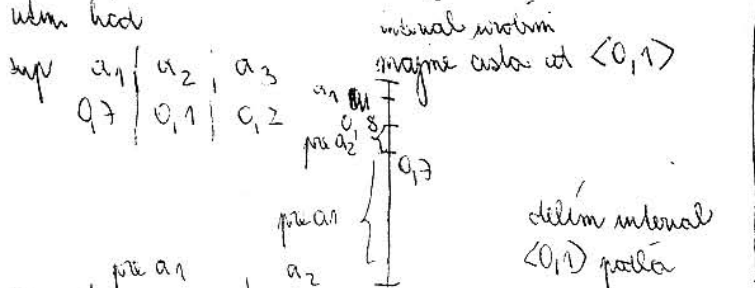 učím hcd
sup a1 | a2 | a3
0,7 | 0,1 | 0,2
interval urobím
majme čísla od <0,1>
a1
0,8
pre a2
0,7
pre a1
delím interval
<0,1) podľa
pre a1 a2